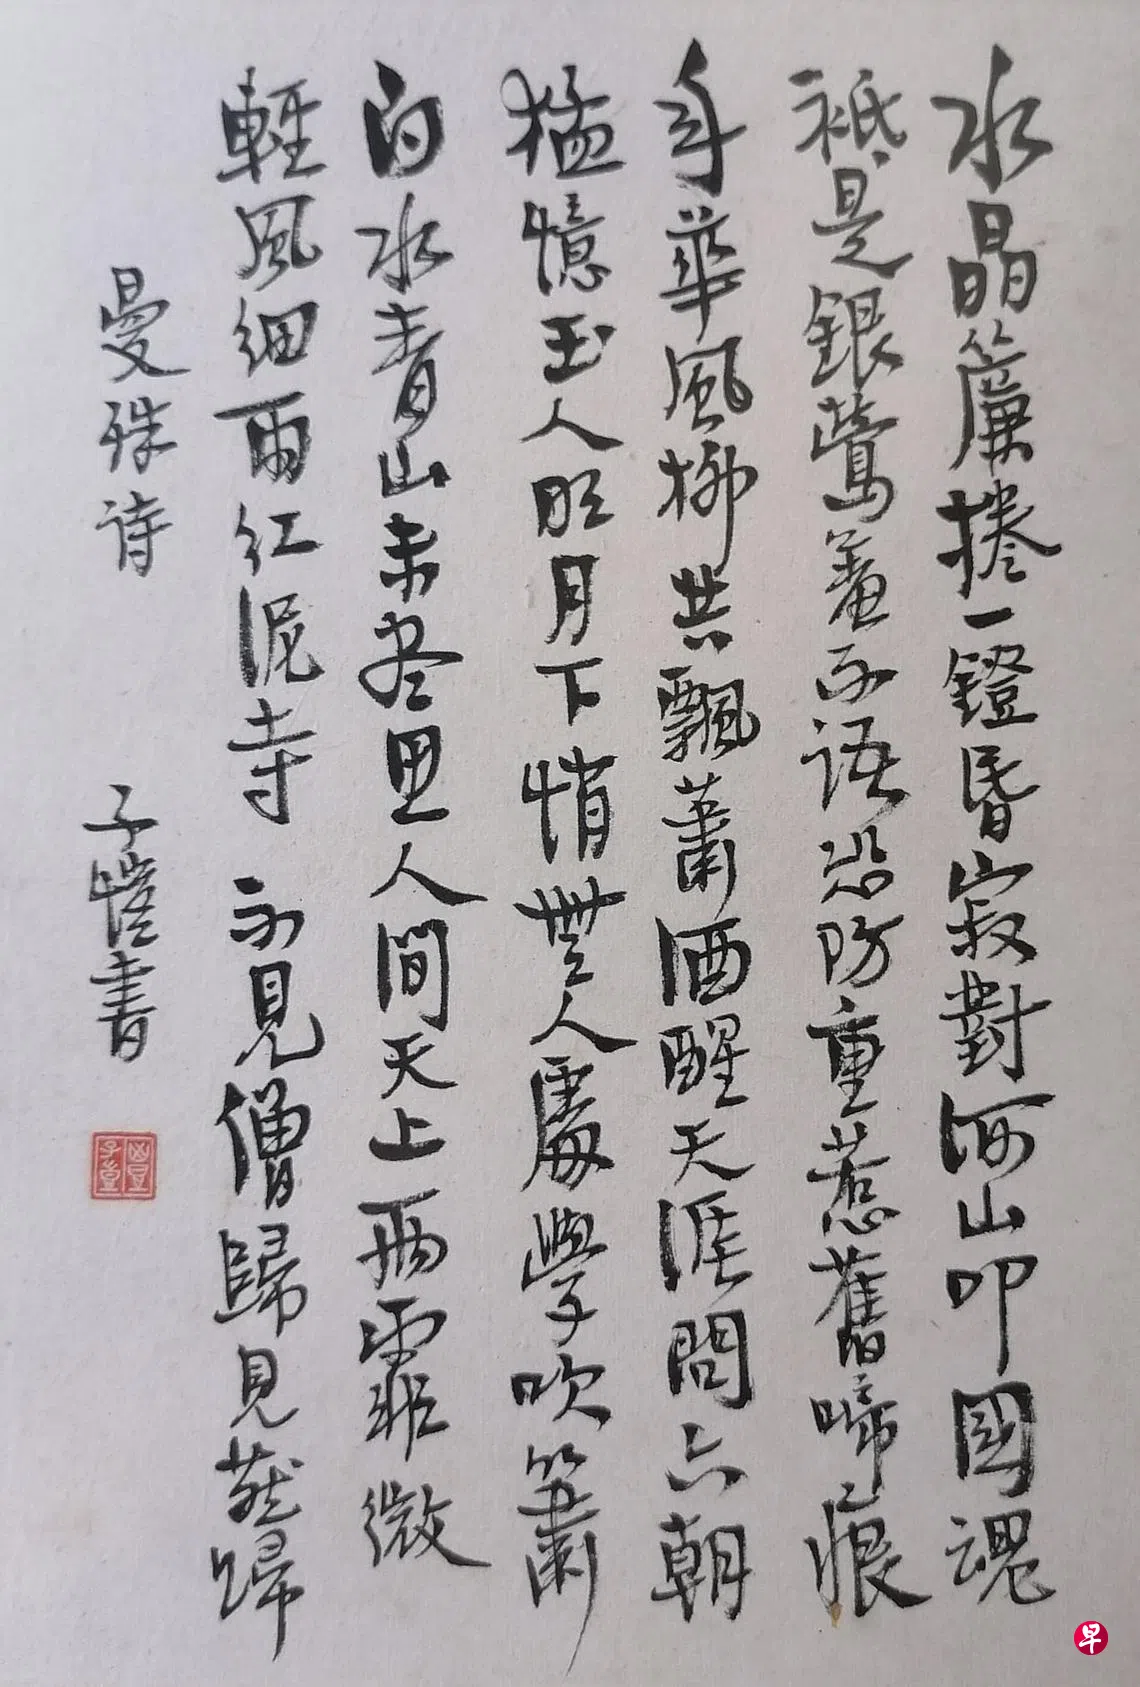 水晶簾捲一鐙昏寂對河山叩國魂
祗是銀鶯羞不語恐防重惹舊啼痕
年華風柳共飄蕭酒醒天涯問六朝
猛憶玉人明月下悄無人處學吹簫
白水青山未尽思人間天上兩霏微
輕風細雨紅泥寺不見僧歸見燕歸
曼殊诗
子愷書
早